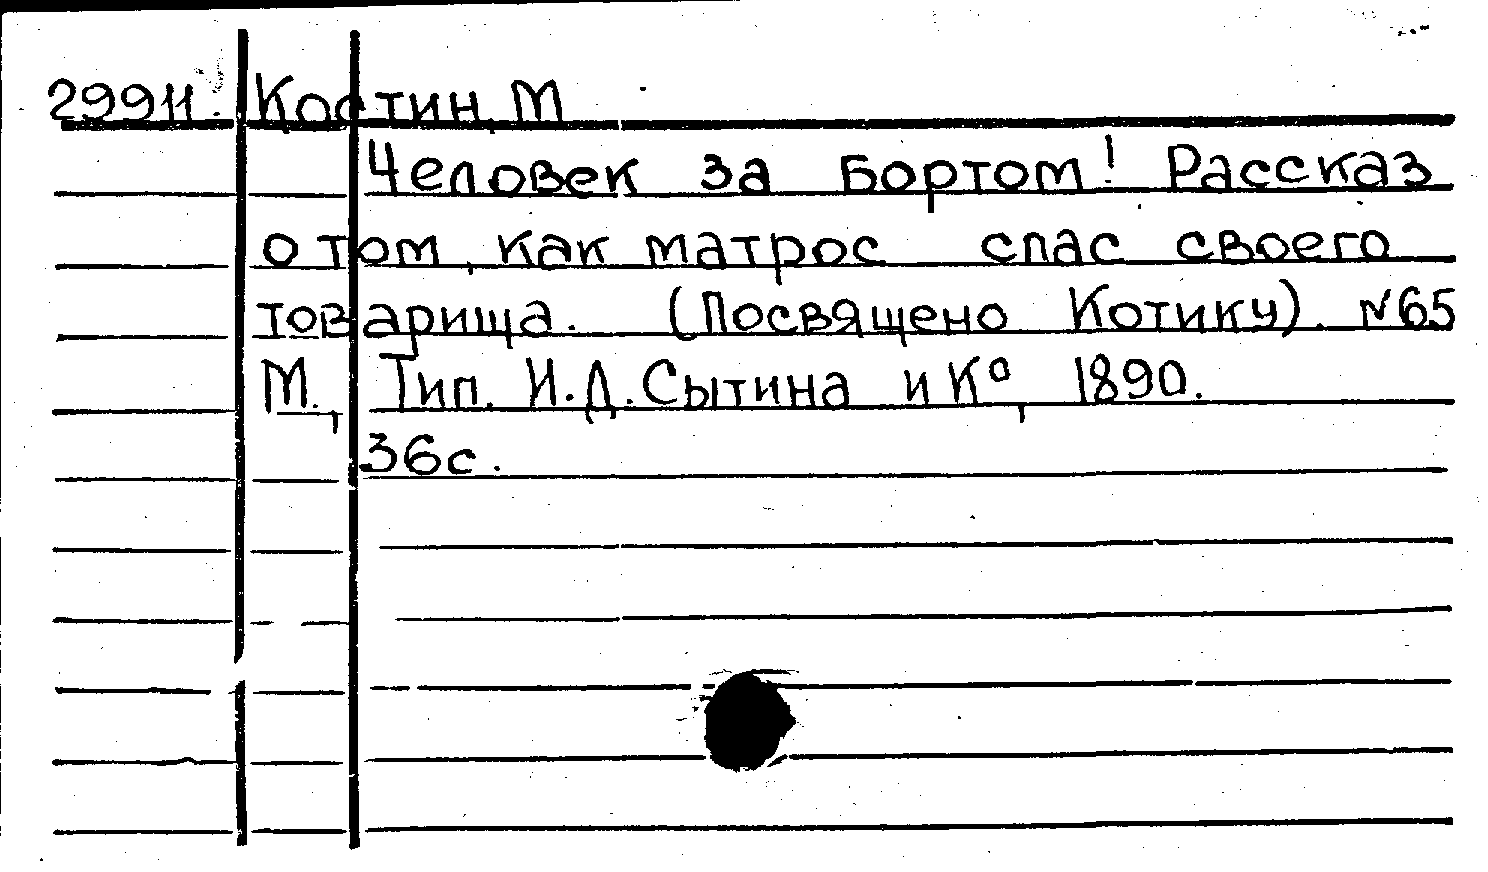 29911. Костин, М
Человек за Бортом! Рассказ
о том, как матрос спас своего
товарища. (Посвящено Котику). №65
М., Тип. И.Д. Сытина и К°, 1890.
36с.